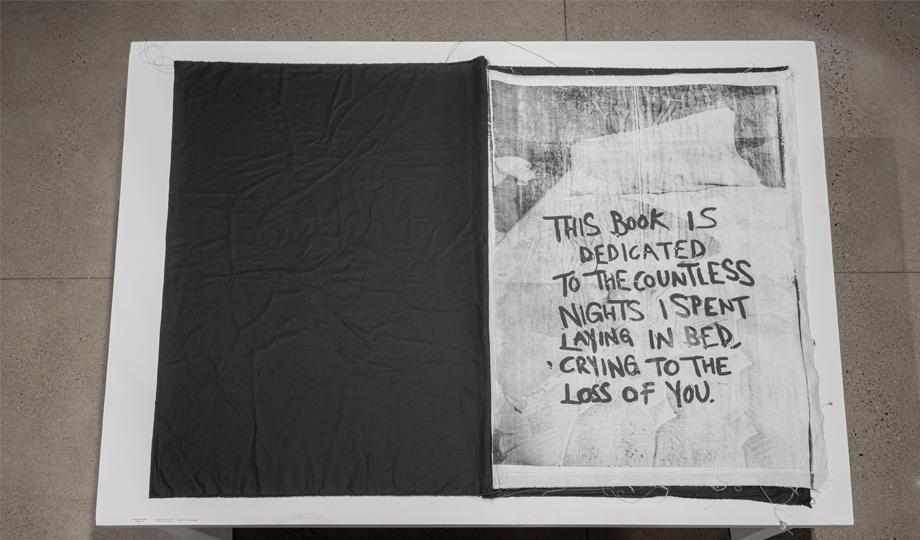 THIS BOOK IS
DEDICATED
TO THE COUNTLESS
NIGHTS I SPENT
LAYING IN BED,
CRYING TO THE
LOSS OF YOU.